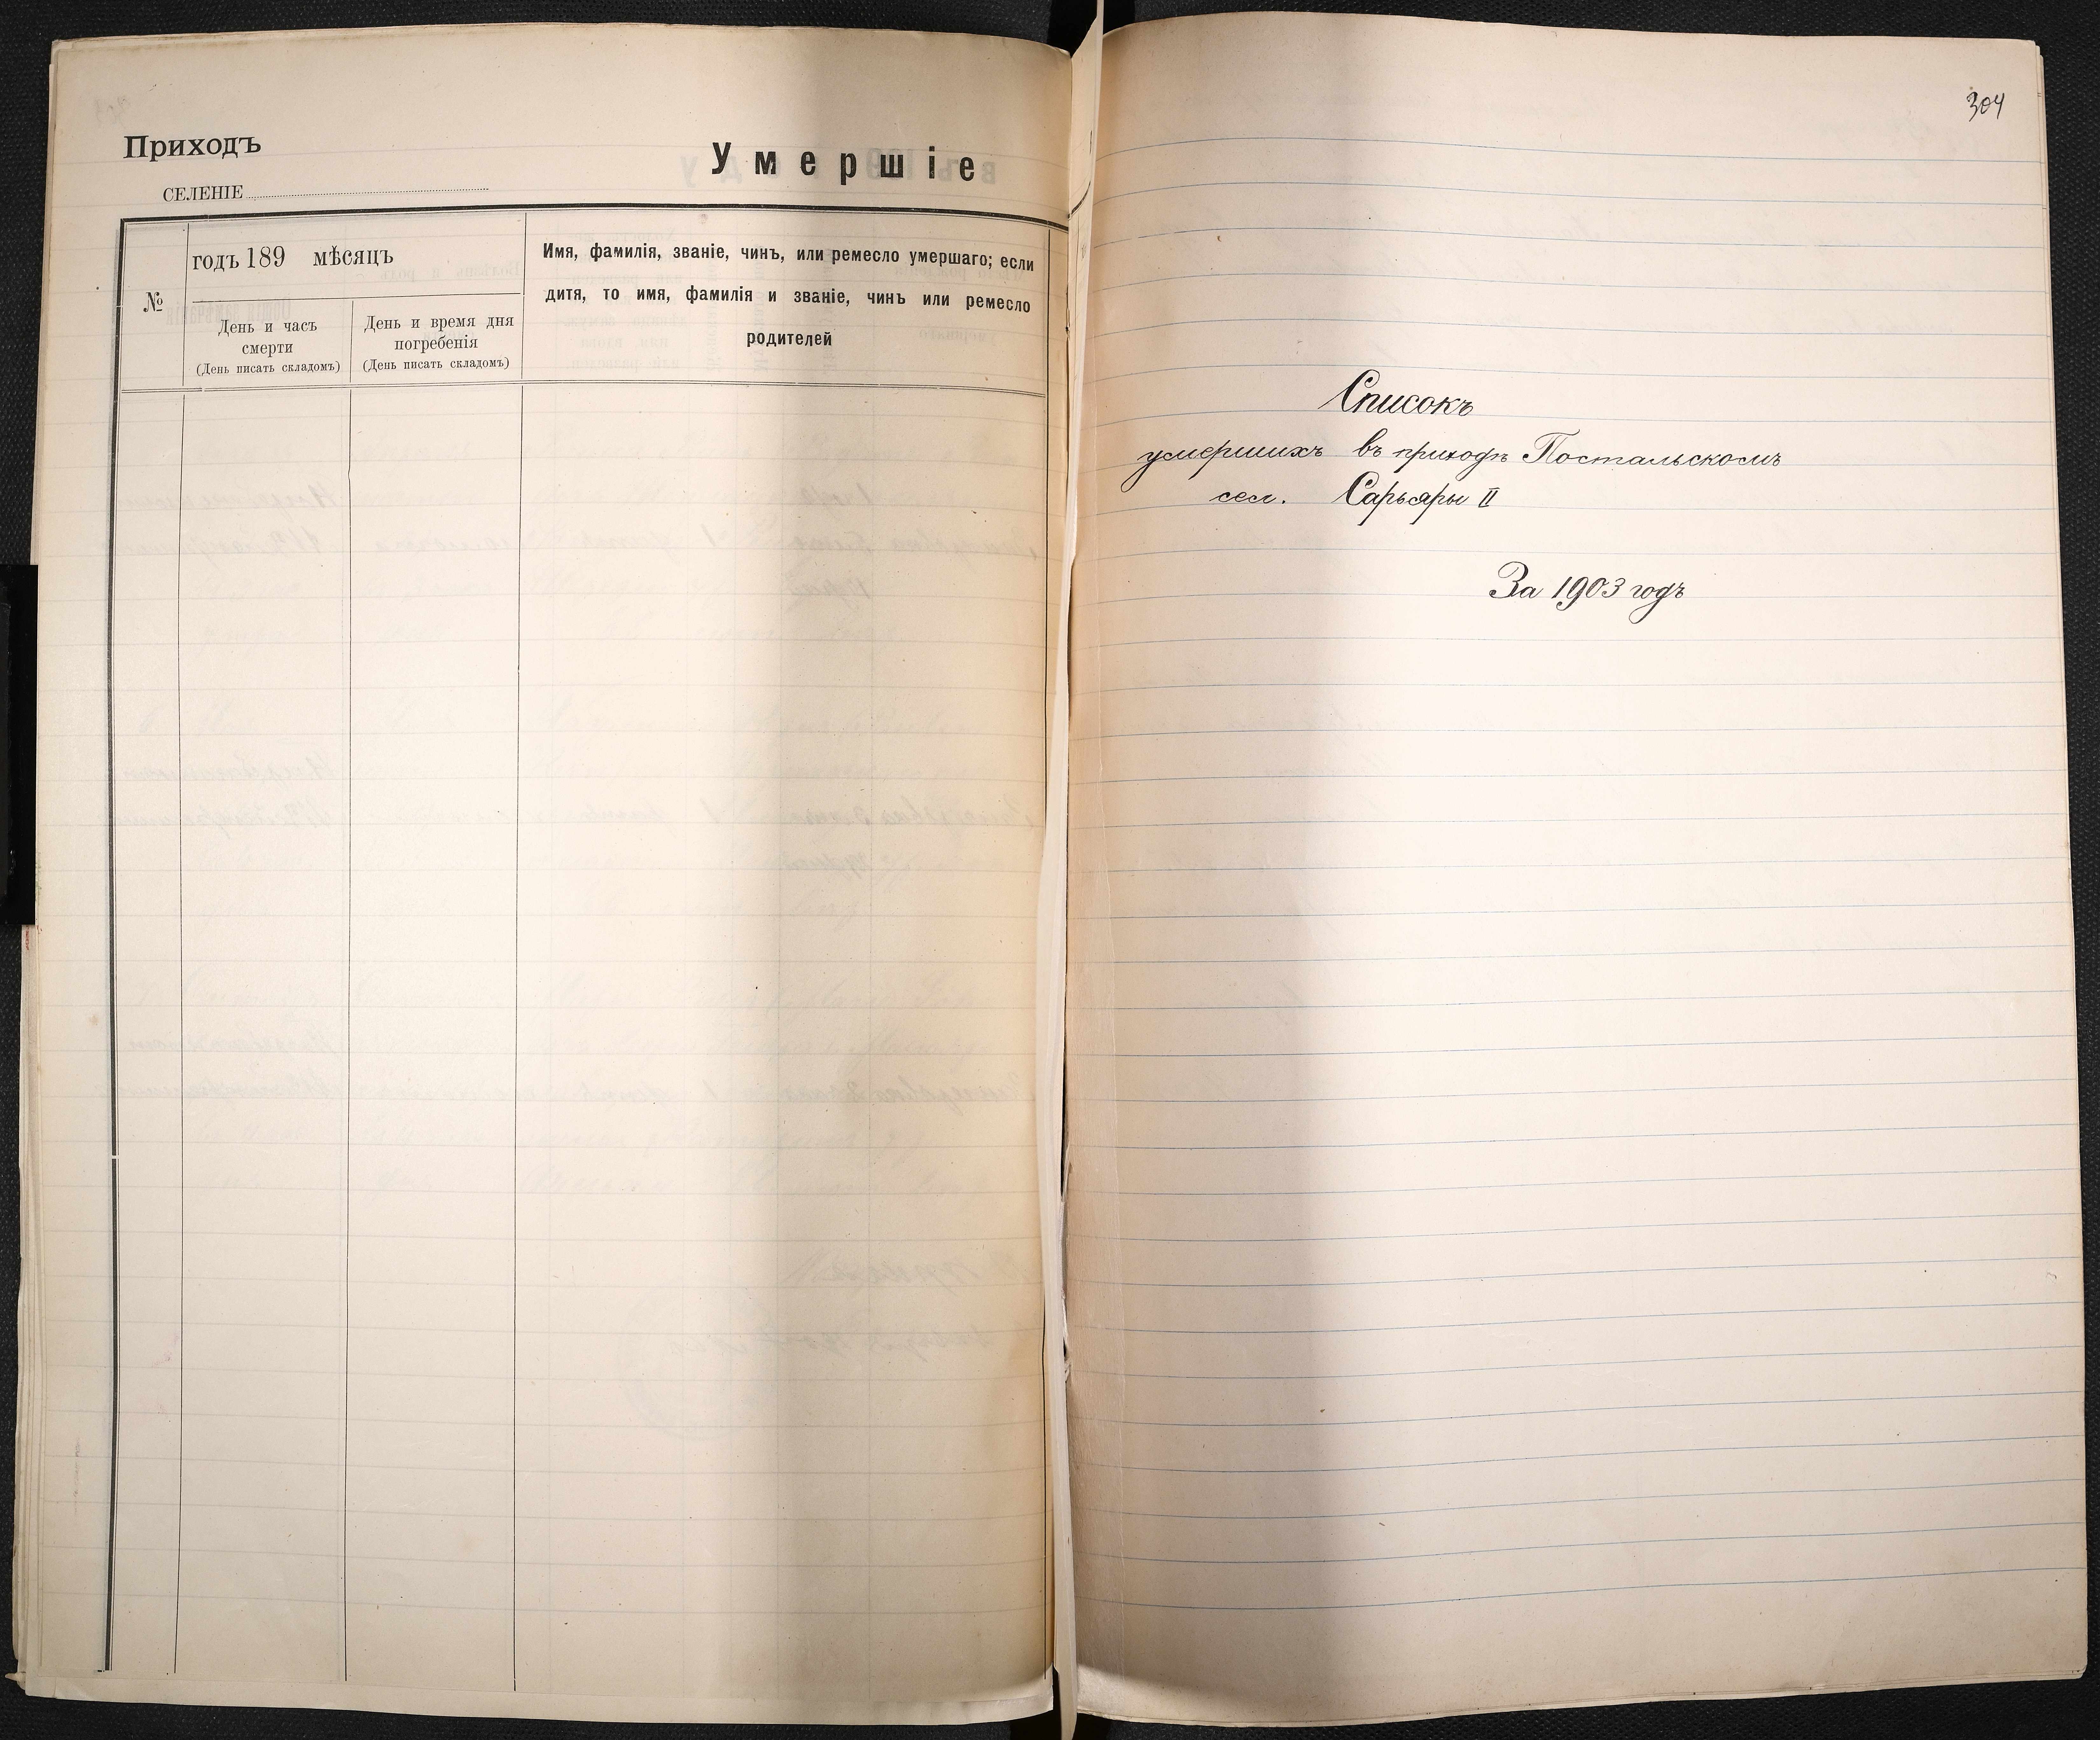 Приходъ
Умершіе
СЕЛЕНІЕ
№
годъ 189 мѣсяцъ
День и часъ
смерти
(День писать складомъ)
День и время дня
погребенія
(День писать складомъ)
Имя, фамилія, званіе, чинъ, или ремесло умершаго; если
дитя, то имя, фамилія и званіе, чинъ или ремесло
родителей
304
Списокъ
умершихъ въ приходѣ Постальскомъ
сел. Сарьяры II
За 1903 годъ